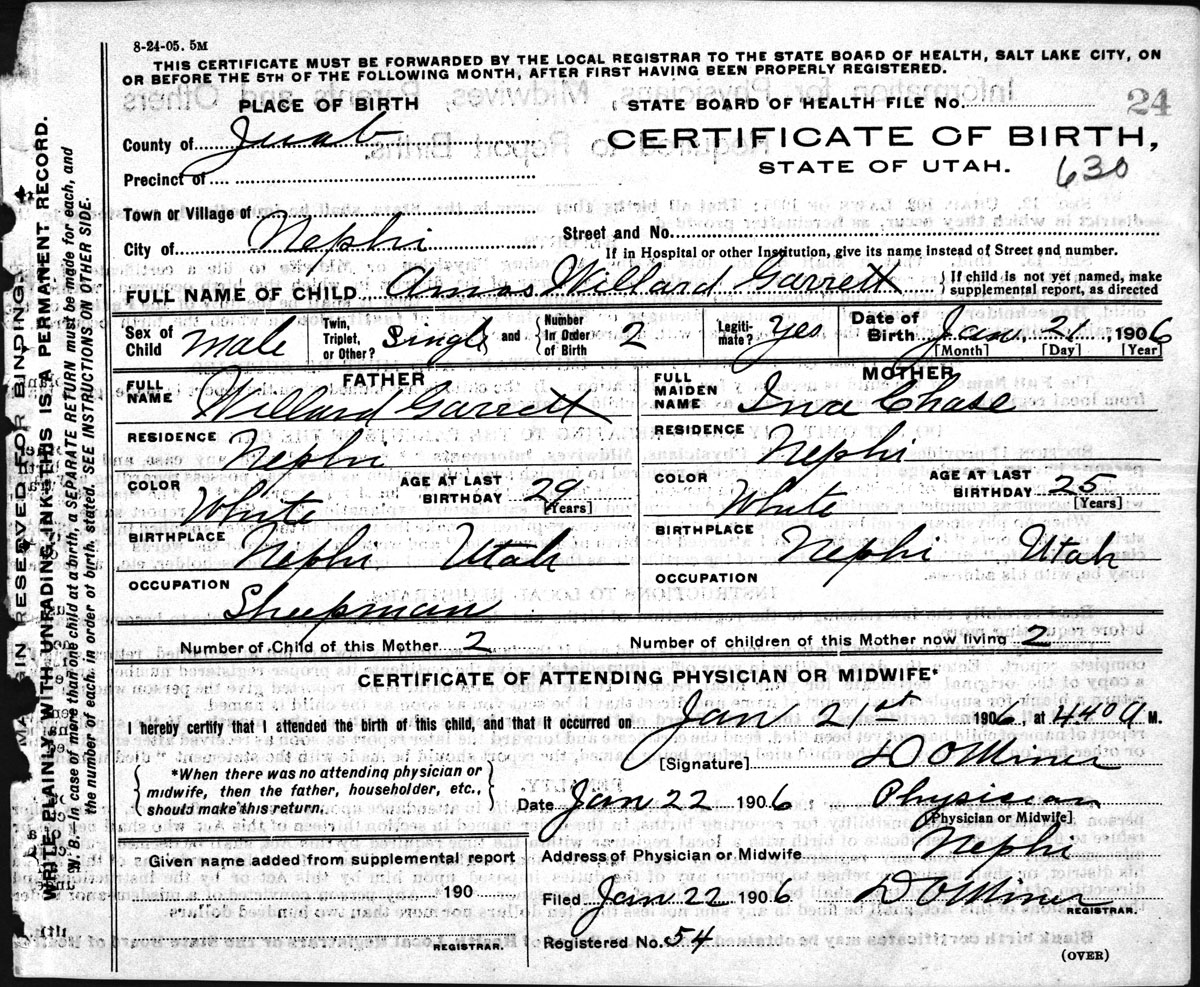 8-24-05. 5M
THIS CERTIFICATE MUST BE FORWARDED BY THE LOCAL REGISTRAR TO THE STATE BOARD OF HEALTH, SALT LAKE CITY, ON
OR BEFORE THE 5TH OF THE FOLLOWING MONTH, AFTER FIRST HAVING BEEN PROPERLY REGISTERED.
PLACE OF BIRTH
STATE BOARD OF HEALTH FILE No. 24
County of Juab
CERTIFICATE OF BIRTH,
STATE OF UTAH.
630
Precinct of
Town or Village of
City of Nephi Street and No.
If in Hospital or other Institution, give its name instead of Street and number.
FULL NAME OF CHILD Amos Willard Garrett { If child is not yet named, make supplemental report, as directed
Sex of Child Male Twin, Triplet, or Other? Single and { Number In Order of Birth 2 Legitimate? Yes Date of Birth Jan, 21, 1906
[Month] [Day] [Year]
FATHER MOTHER
FULL NAME Willard Garrett FULL MAIDEN NAME Chase
RESIDENCE Nephi RESIDENCE Nephi
COLOR White AGE AT LAST BIRTHDAY 29 [Years] COLOR White AGE AT LAST BIRTHDAY 25 [Years]
BIRTHPLACE Nephi Utah BIRTHPLACE Nephi Utah
OCCUPATION Sheepman OCCUPATION
Number of Child of this Mother 2 Number of children of this Mother now living 2
CERTIFICATE OF ATTENDING PHYSICIAN OR MIDWIFE*
I hereby certify that I attended the birth of this child, and that it occurred on Jan 21st 1906, at 440 a M.
[Signature] D O Miner
{ *When there was no attending physician or midwife, then the father, householder, etc., should make this return. }
Date Jan 22 1906 Physician
[Physician or Midwife]
Given name added from supplemental report
Address of Physician or Midwife Nephi
190
Filed Jan 22 1906 D O Miner
REGISTRAR.
REGISTRAR.
Registered No. 54
(OVER)
MARGIN RESERVED FOR BINDING.
WRITE PLAINLY WITH UNFADING INK—THIS IS A PERMANENT RECORD.
N. B.—In case of more than one child at a birth, a SEPARATE RETURN must be made for each, and
the number of each, in order of birth, stated. SEE INSTRUCTIONS ON OTHER SIDE.